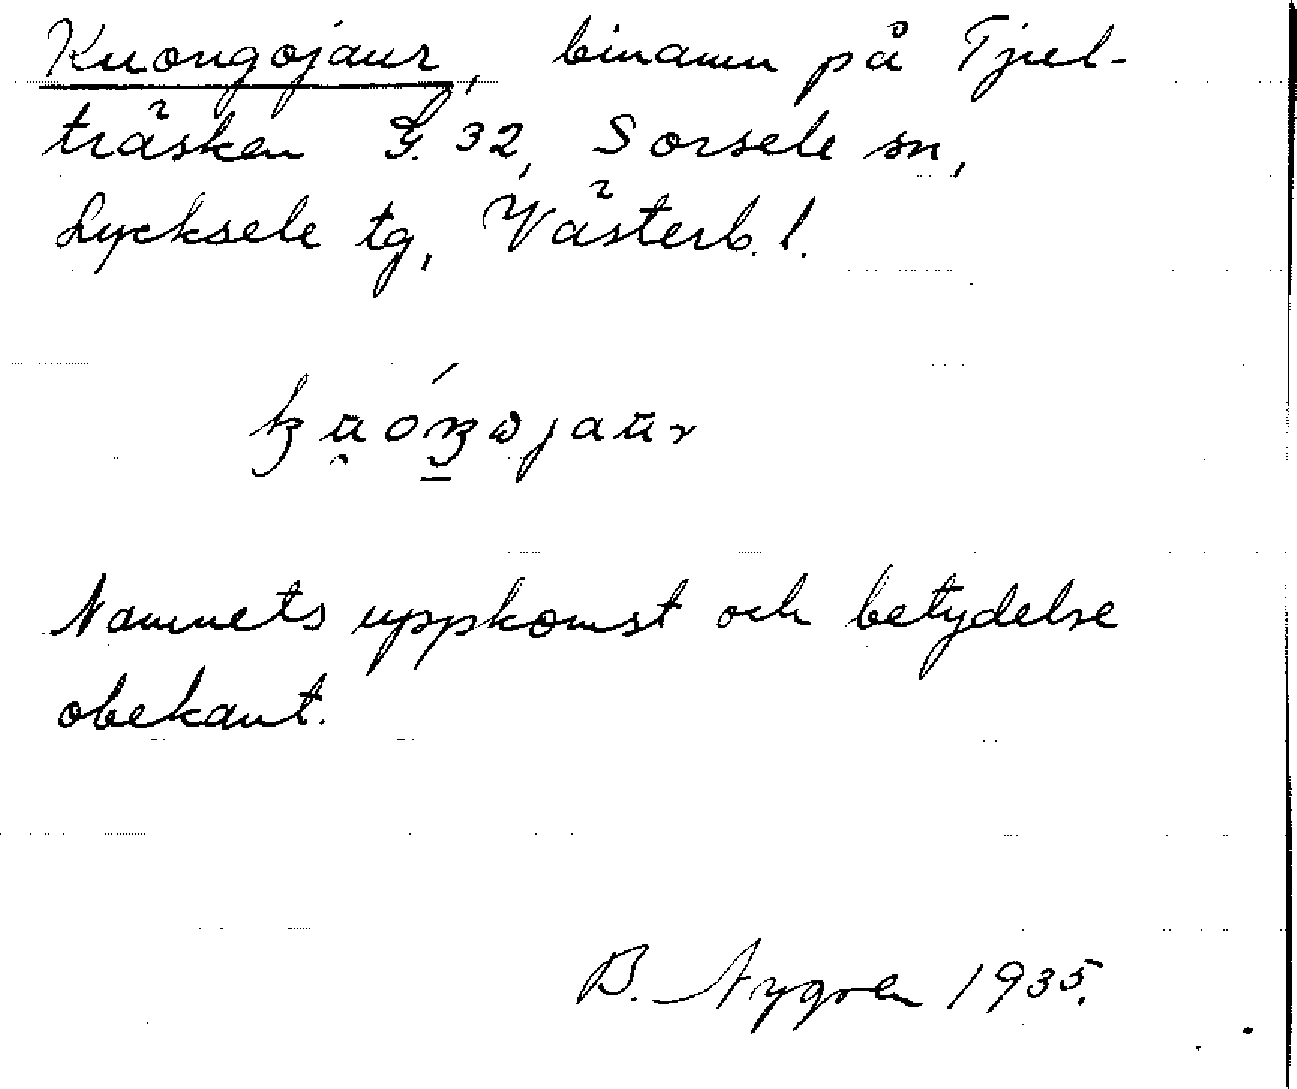 Kuongojaur, binamn på Tjul-
träsken G. 32, Sorsele sn,
Lycksele tg, Västerb. l.
Namnets uppkomst och betydelse
obekant.
B. Nygren 1935.